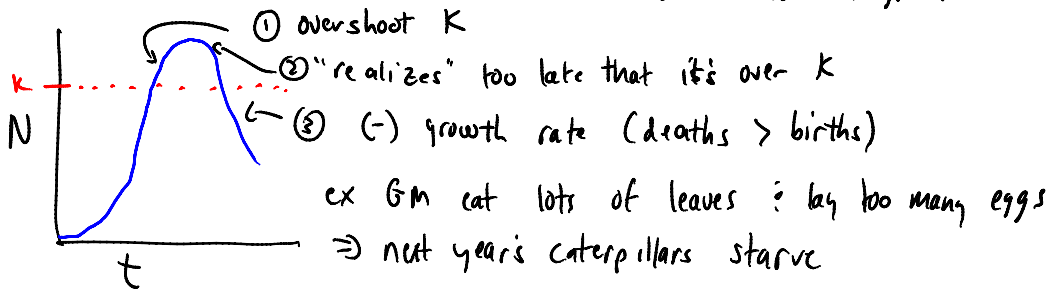 ① overshoot K
② "realizes" too late that it's over K
K
N
③ (-) growth rate (deaths > births)
ex GM eat lots of leaves & lay too many eggs
⇒ next year's caterpillars starve
t